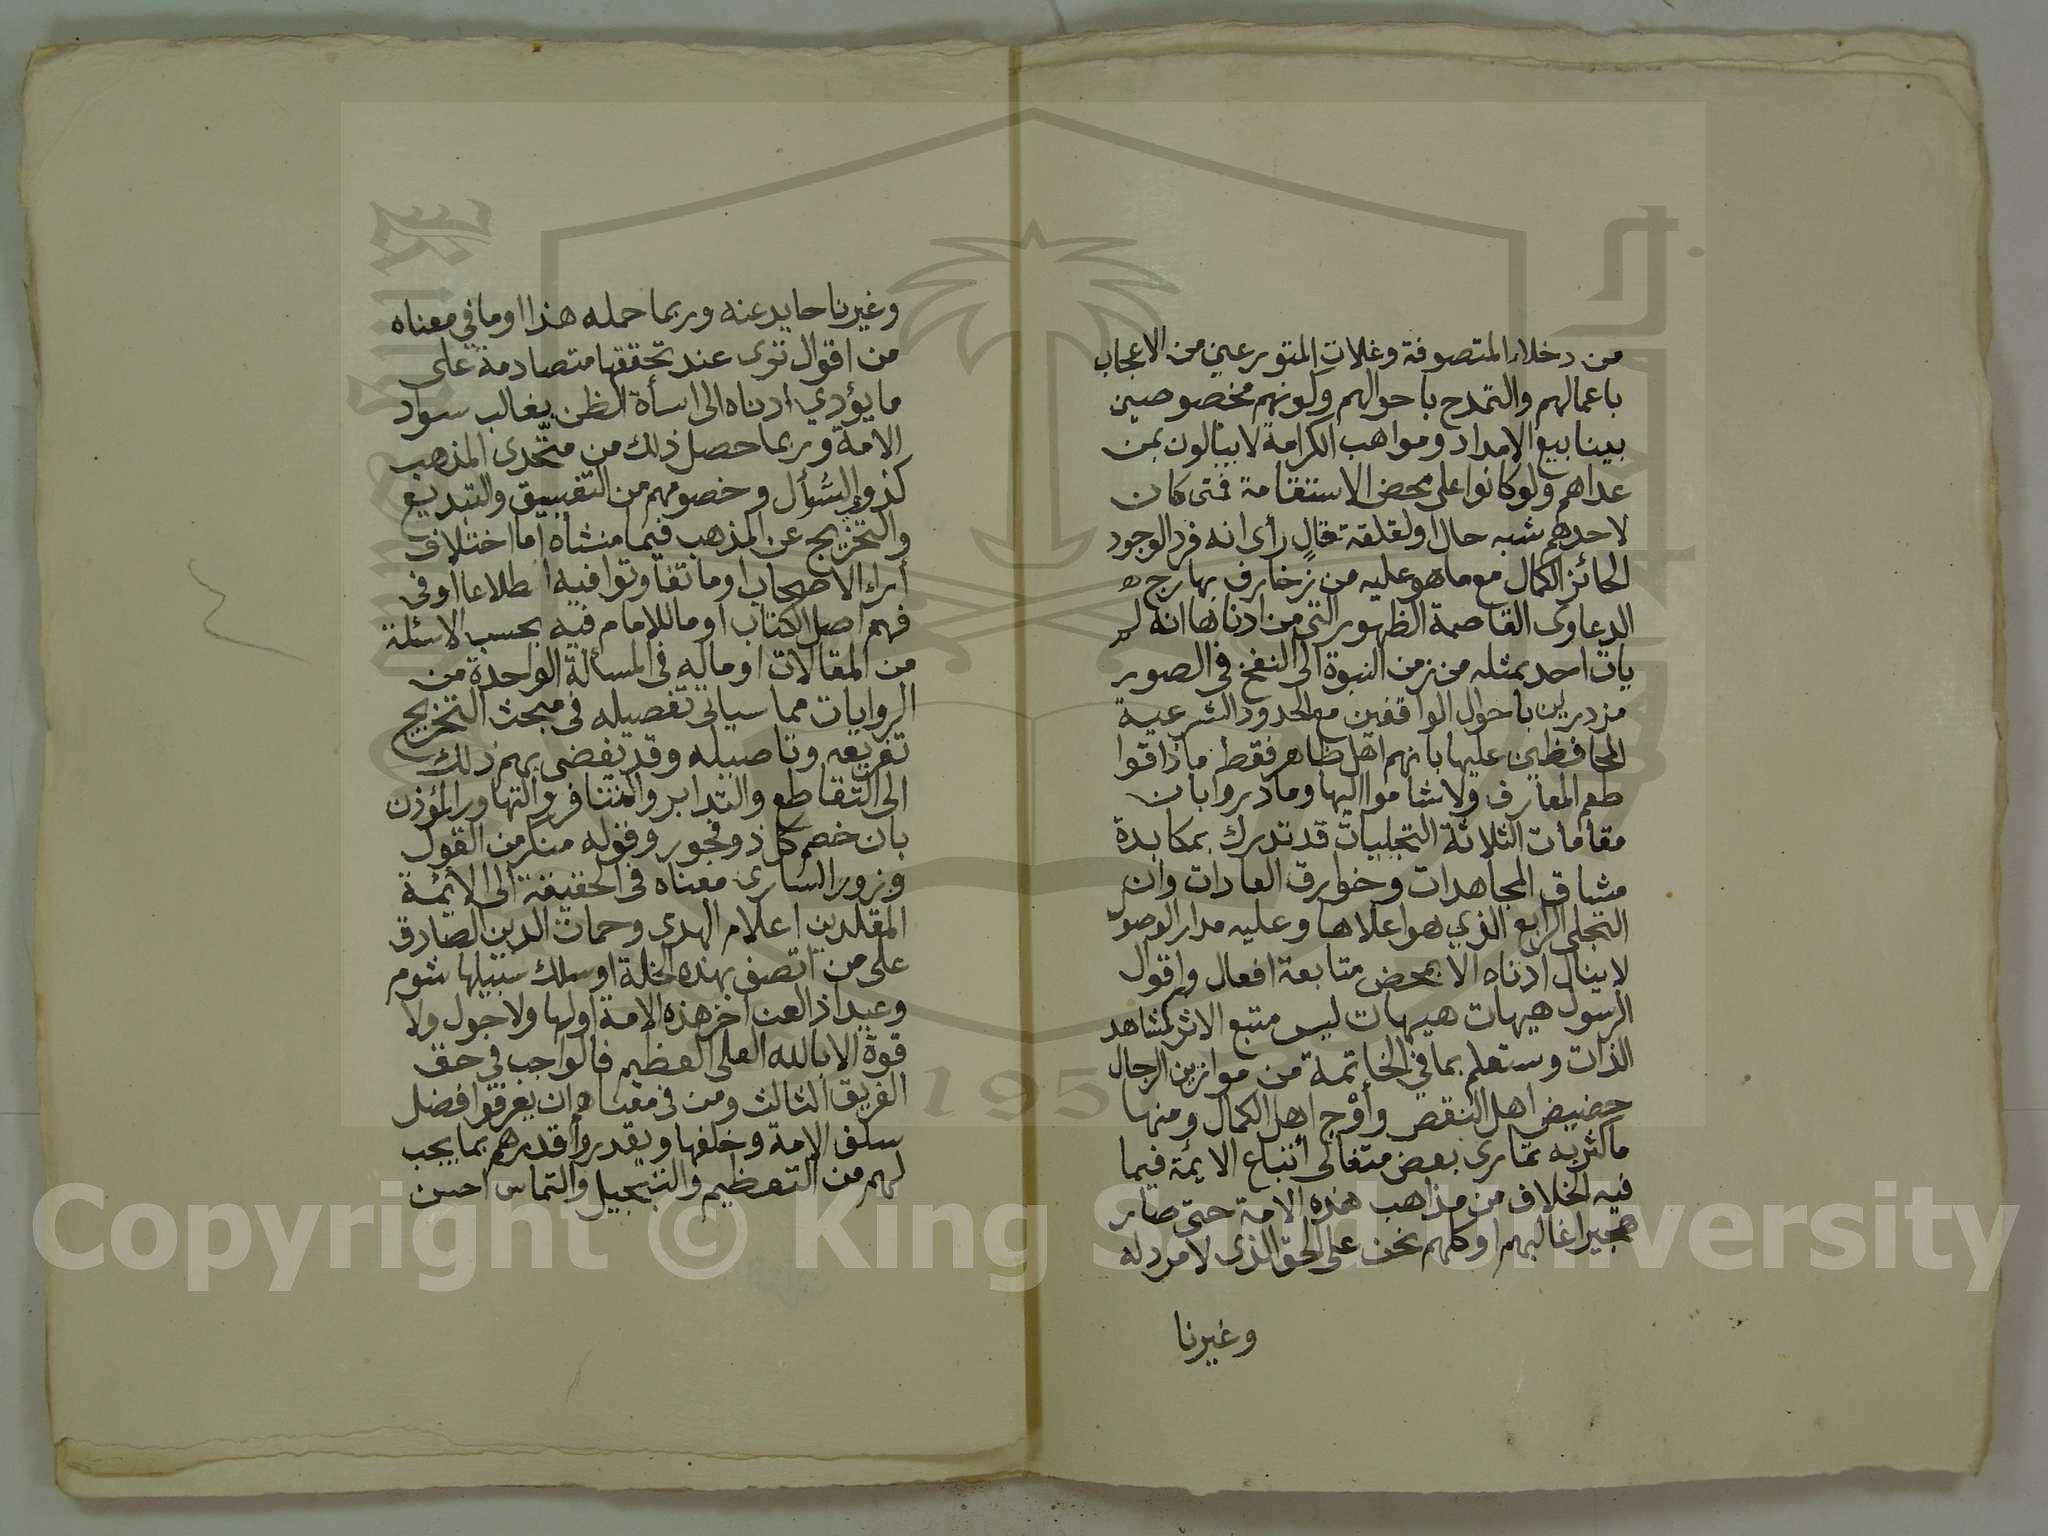 من دخلاء المتصوفة وغلات المتورعين من الاعجاب
باعمالهم والتمدح باحوالهم وكونهم مخصوصين
بينابيع الامداد ومواهب الكرامة لا يبالون بمن
عداهم ولو كانوا على محض الاستقامة فمتى كان
لاحدهم شبه حال او لقلقة قال رأى انه فرد الوجود
الحائز الكمال مع ما هو عليه من زخارف بهارج
الدعاوى القاصمة الظهور التى من ادناها انه لم
يات احد بمثله من زمن النبوة الى النفخ فى الصور
مزدرين باحوال الواقفين مع الحدود الشرعية
المحافظين عليها بانهم اهل ظاهر فقط ما ذاقوا
طعم المعارف ولا شاموا اليها وما دروا بان
مقامات الثلاثة التجليات قد تدرك بمكابدة
مشاق المجاهدات وخوارق العادات وان
التجلى الرابع الذي هو اعلاها وعليه مدار الوصول
لا ينال ادناه الا بمحض متابعة افعال واقوال
الرسول هيهات هيهات ليس متبع الاثر كمشاهد
الذات وستعلم بما في الخاتمة من موازين الرجال
حضيض اهل النقص وأوج اهل الكمال ومنها
ما كثر به تمارى بعض متغالى أتباع الايمة فيما
فيه الخلاف من مذاهب هذه الامة حتى صار
هجيرا غالبهم او كلهم نحن على الحق الذى لا مرد له
وغيرنا
وغيرنا حايد عنه وربما حمله هذا او ما في معناه
من اقوال ترى عند تحققها متصادمة على
ما يؤدي ادناه الى اسأة الظن بغالب سواد
الامة وربما حصل ذلك من متحدى المذهب
كذو السؤل وخصومهم من التفسيق والتبديع
والتخريج عن المذهب فيما منشاه اما اختلاف
أراء الاصحاب او ما تفاوتوا فيه اطلاعا او فى
فهم اصل الكتاب او ما للامام فيه بحسب الاسئلة
من المقالات او ماله فى المسألة الواحدة من
الروايات مما سياتى تفصيله فى مبحث التخريج
تفريعه وتاصيله وقد يفضى بهم ذلك
الى التقاطع والتدابر والتنافر والتهاور المؤذن
بان خصم كل ذو فجور وقوله منكر من القول
وزور السارى معناه فى الحقيقة الى الأيمة
المقلدين اعلام الهدى وحمات الدين الصادق
على من اتصف بهذه الخلة او سلك سبيلها شوم
وعيد اذا لعن اخر هذه الامة اولها ولا حول ولا
قوة الا بالله العلى العظيم فالواجب في حق
الفريق الثالث ومن فى معناهم ان يعرفوا فضل
سلف الامة وخلفها ويقدروا قدرهم بما يجب
لهم من التعظيم والتبجيل والتماس احسن
Copyright © King Saud University
1957